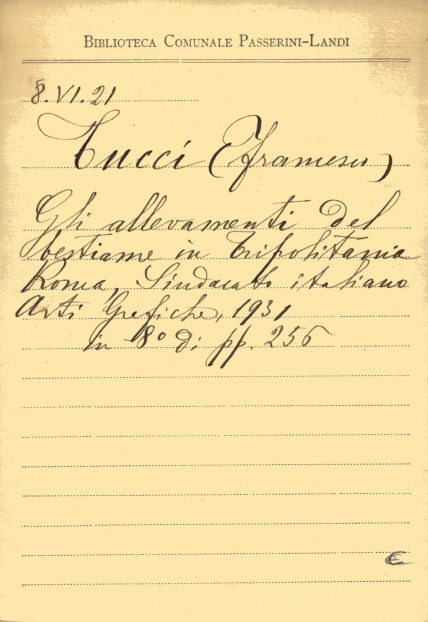 BIBLIOTECA COMUNALE PASSERINI-LANDI
8.VI.21
Tucci (Francesco)
Gli allevamenti del
bestiame in Tripolitania
Roma, Sindacato italiano
Arti Grafiche, 1931
in 8º di pp. 256
C